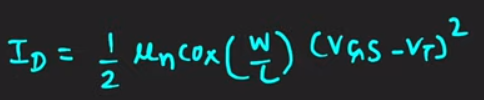 I_D = 1/2 μn cox (W/L) (VGS - VT)²